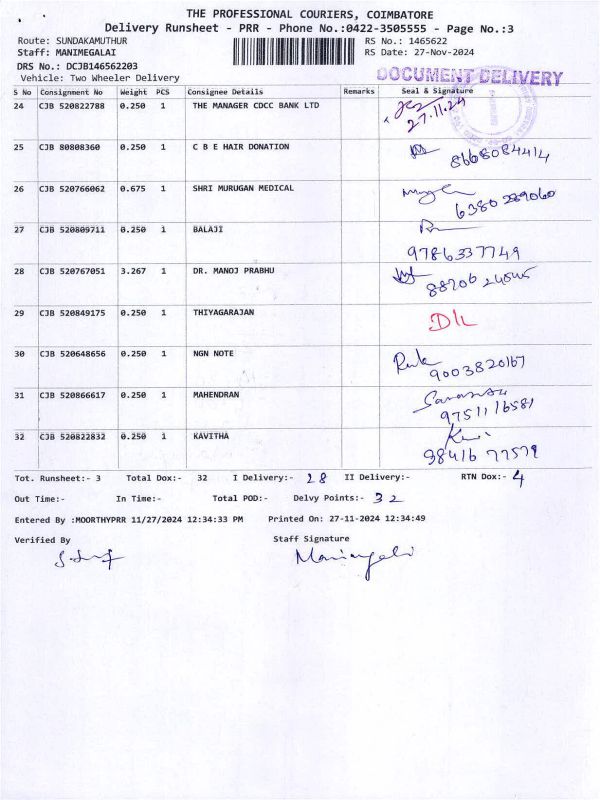 THE PROFESSIONAL COURIERS, COIMBATORE
Delivery Runsheet - PRR - Phone No.:0422-3505555 - Page No.:3
Route: SUNDAKAMUTHUR RS No.: 1465622
Staff: MANIMEGALAI RS Date: 27-Nov-2024
DRS No.: DCJB146562203
Vehicle: Two Wheeler Delivery DOCUMENT DELIVERY
S No Consignment No Weight PCS Consignee Details Remarks Seal & Signature
24 CJB 520822788 0.250 1 THE MANAGER CDCC BANK LTD
27.11.24
25 CJB 80808360 0.250 1 C B E HAIR DONATION
8668084414
26 CJB 520766062 0.675 1 SHRI MURUGAN MEDICAL
6380289060
27 CJB 520809711 0.250 1 BALAJI
9786337749
28 CJB 520767051 3.267 1 DR. MANOJ PRABHU
29 CJB 520849175 0.250 1 THIYAGARAJAN DL
30 CJB 520648656 0.250 1 NGN NOTE
9003820167
31 CJB 520866617 0.250 1 MAHENDRAN
9751116581
32 CJB 520822832 0.250 1 KAVITHA
98416 77579
Tot. Runsheet:- 3 Total Dox:- 32 I Delivery:- 28 II Delivery:- RTN Dox:- 4
Out Time:- In Time:- Total POD:- Delvy Points:- 32
Entered By :MOORTHYPRR 11/27/2024 12:34:33 PM Printed On: 27-11-2024 12:34:49
Verified By Staff Signature
Manimegalai